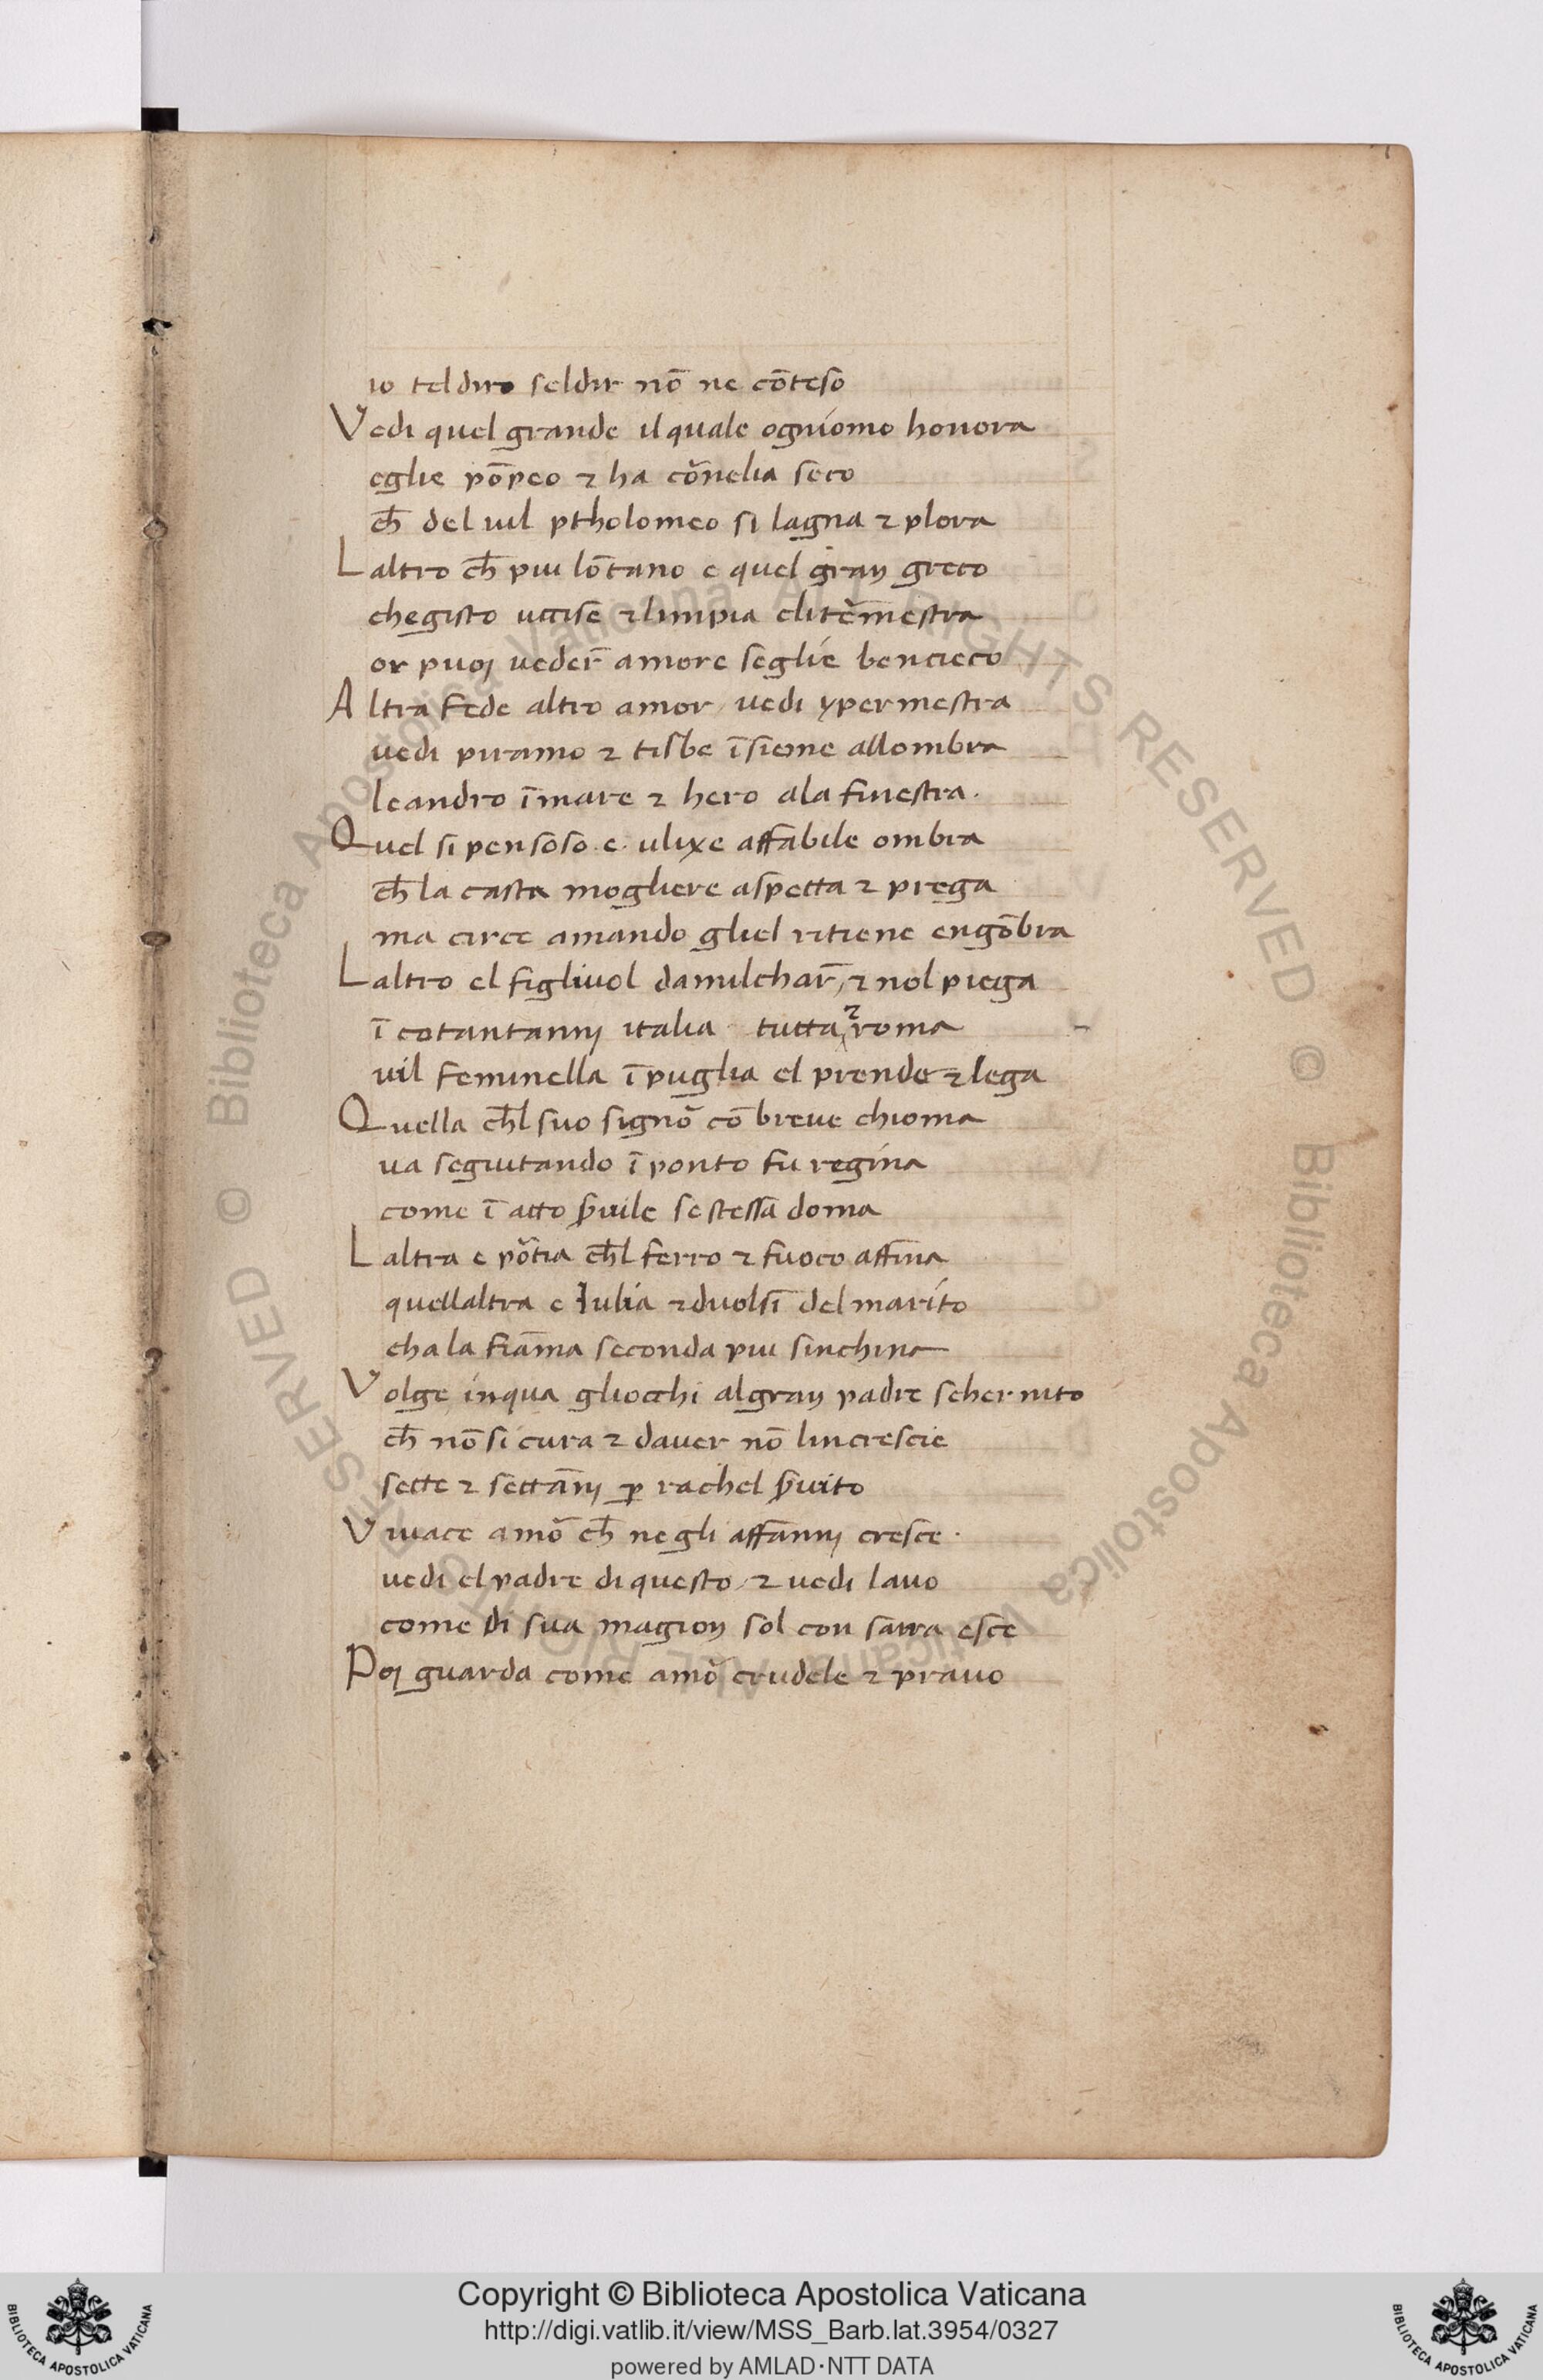 io teldiro seldir nō ne cōteso
Vedi quel grande il quale ogniomo honora
eglie pōpeo ⁊ ha cōrnelia seco
ch̄ del uil ptholomeo si lagna ⁊ plora
Laltro ch̄ piu lōtano e quel gran greco
chegisto uccise ⁊ limpia clitēmestra
or puoj ueder̄ amore seglie bencieco
Altra fede altro amor / uedi ypermestra
uedi piramo ⁊ tisbe īsieme allombra
leandro ī mare ⁊ hero ala finestra.
Quel si pensoso e ulixe affabile ombra
ch̄ la casta mogliere aspetta ⁊ prega
ma circe amando gliel ritiene engōbra
Laltro el figliuol damilchar̄, ⁊ nol piega
ī cotantannj italia tutta ⁊ roma
uil feminella ī puglia el prende ⁊ lega
Quella ch̄l suo signō cō breue chioma
ua seguitando ī ponto fu regina
come ī atto s̄uile se stessa doma
Laltra e pōtia ch̄l ferro ⁊ fuoco affina
quellaltra e Iulia ⁊ duolsi del marito
cha la fiāma seconda piu sinchina
Volge inqua gliocchi al gran padre schernito
ch̄ nō si cura ⁊ dauer nō lincrescie
sette ⁊ settānj ꝑ rachel s̄uito
Viuace amō ch̄ negli affannj cresce.
uedi el padre di questo / ⁊ uedi lauo
come di sua magion sol con sarra esce
Poj guarda come amō crudele ⁊ prauo
Copyright © Biblioteca Apostolica Vaticana
http://digi.vatlib.it/view/MSS_Barb.lat.3954/0327
powered by AMLAD·NTT DATA
BIBLIOTECA APOSTOLICA VATICANA
BIBLIOTECA APOSTOLICA VATICANA
© Biblioteca Apostolica Vaticana ALL RIGHTS RESERVED
© Biblioteca Apostolica Vaticana ALL RIGHTS RESERVED